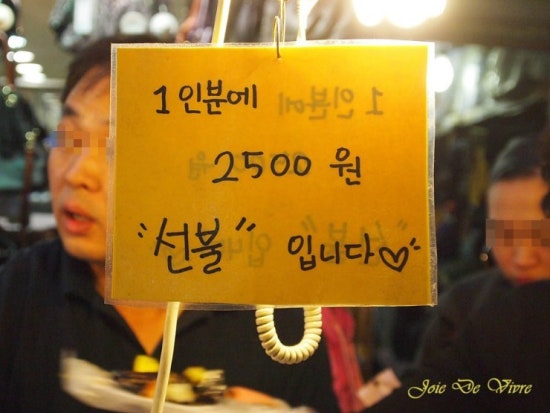 1인분에
2500 원
"선불" 입니다♡
Joie De Vivre